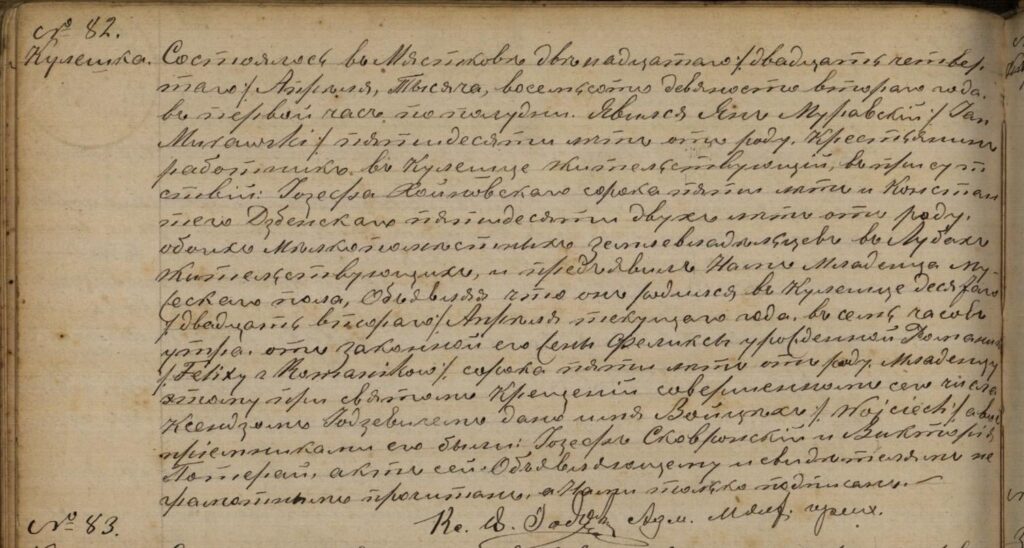 № 82.
Кулешка. Состоялось въ Мястковѣ двѣнадцатаго / двадцать четвер-
таго / Апрѣля, Тысяча, восемьсотъ девяносто втораго года.
въ первой часъ по полудни. Явился Янъ Муравскій / Jan
Murawski / пятидесяти лѣтъ отъ роду, Крестьянинъ
работникъ, въ Кулешце жительствующій, въ присут
ствіи: Іозефа Хойновскаго сорока пяти лѣтъ и Констан
таго Дзбенскаго пятидесяти двухъ лѣтъ отъ роду.
обоихъ Мѣлкопомѣстныхъ землевладѣльцевъ въ Лубахъ
жительствующихъ, и предъявилъ Намъ Младенца му-
ескаго пола, Объявляя что онъ родился въ Кулешце десятаго
/ двадцать втораго / Апрѣля текущаго года. въ семь часовъ
утра. отъ законной его Жены Феликсы урожденной Романикъ
/ Felixy z Romaników /. сорока пяти лѣтъ отъ роду. Младенцу
этому при святомъ Крещеніи совершенномъ сего числа
Ксендзомъ Годзевичемъ дано имя Войцѣхъ / Wojciech / а вос
пріемниками его были: Іозефъ Сковронскій и Викторія
Потерай. актъ сей Объявляющему и свидѣтелямъ не
грамотнымъ прочитанъ, а Нами только подписанъ. —
Кс.
№ 83.